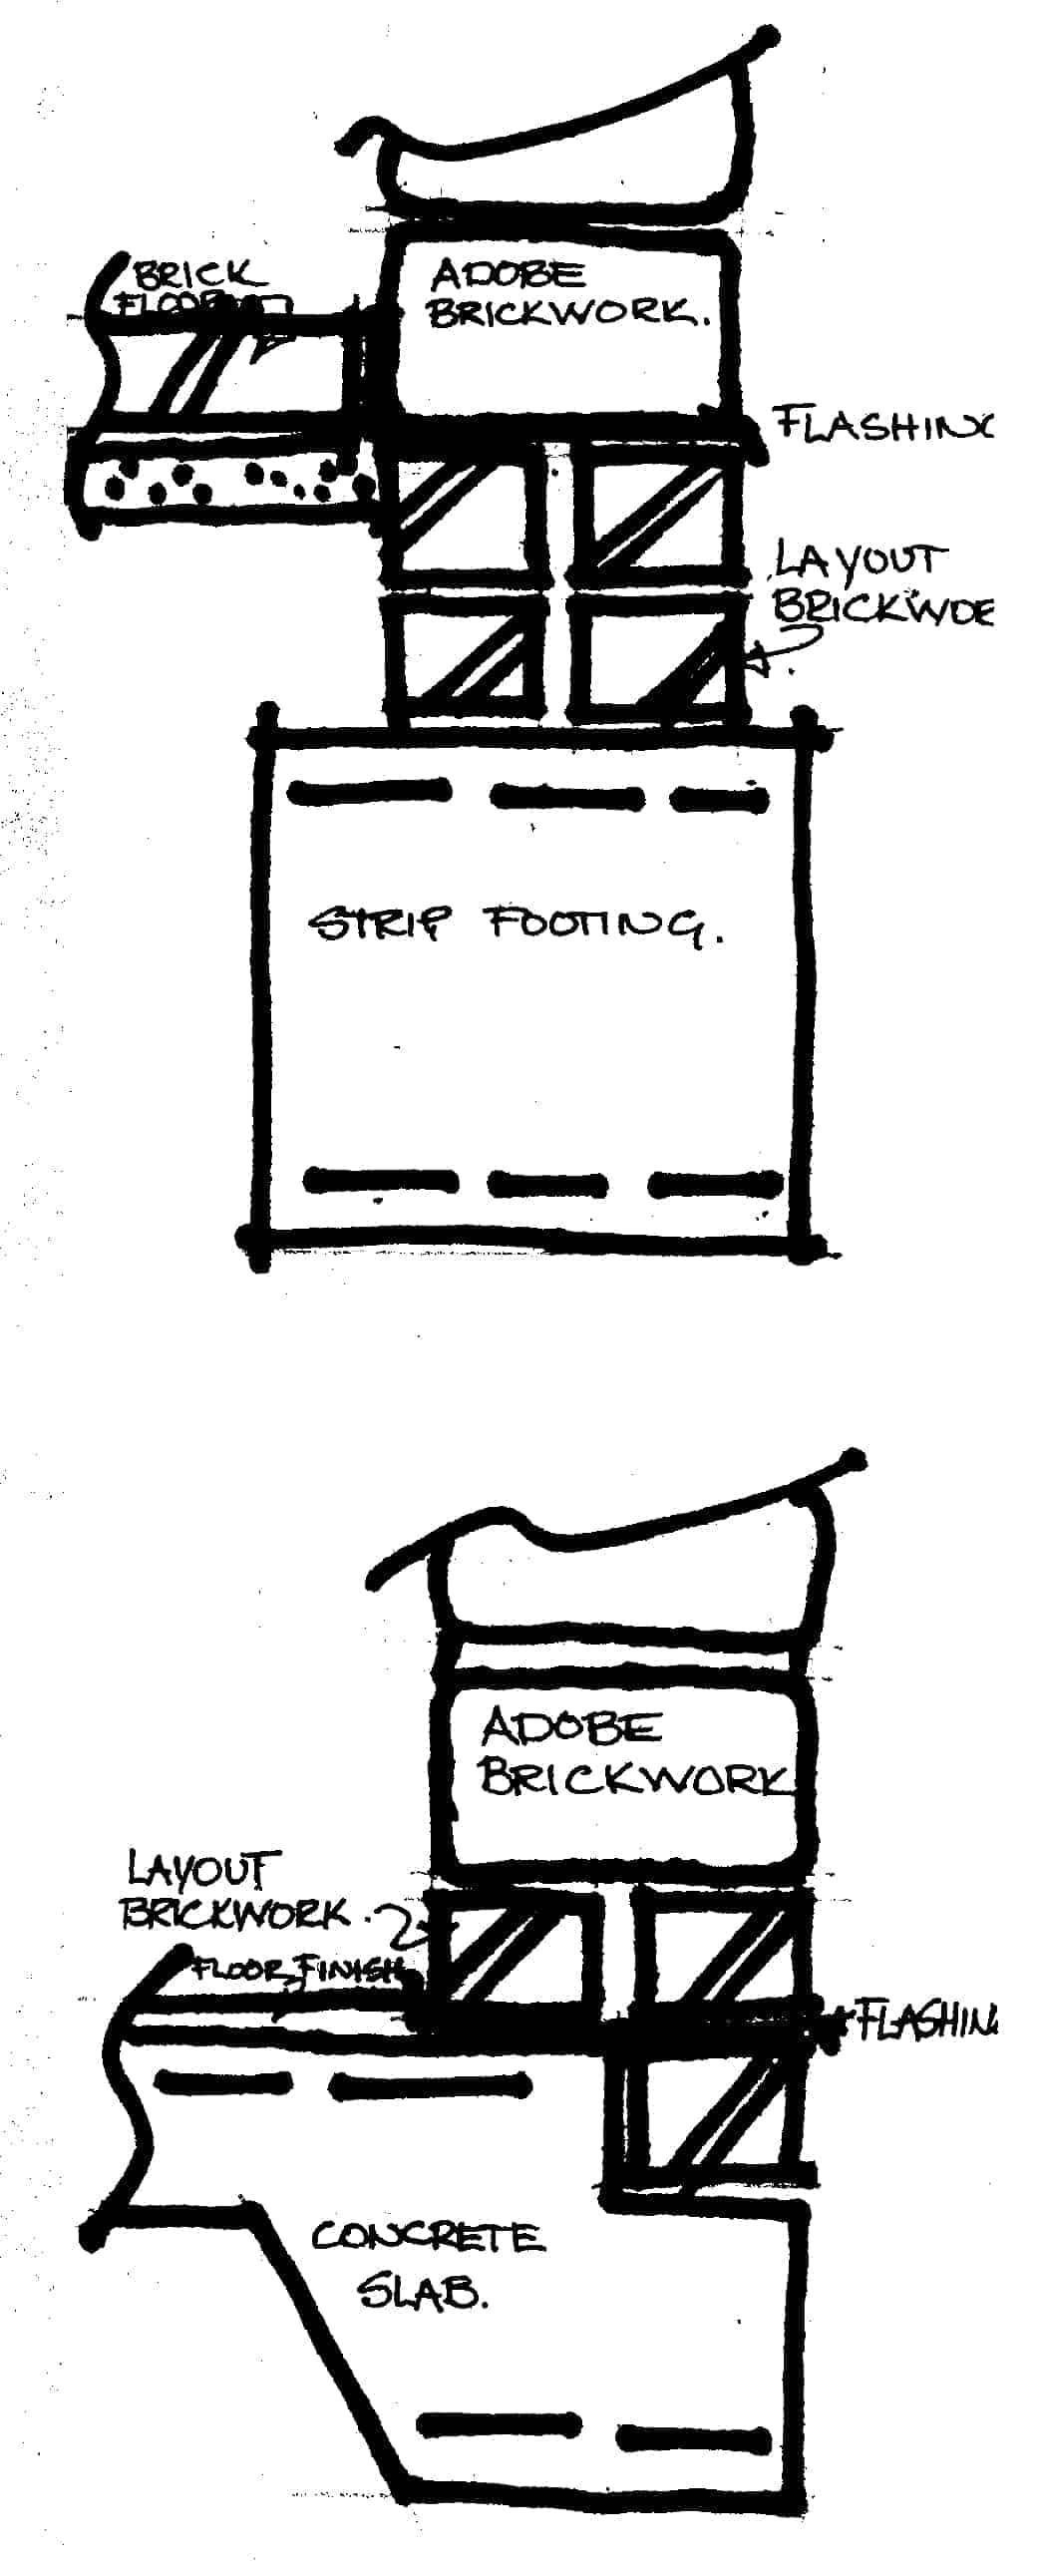 BRICK
FLOOR
ADOBE
BRICKWORK.
FLASHIN
LAYOUT
BRICKWO
STRIP FOOTING.
ADOBE
BRICKWORK
LAYOUT
BRICKWORK.
FLOOR FINISH
FLASHIN
CONCRETE
SLAB.